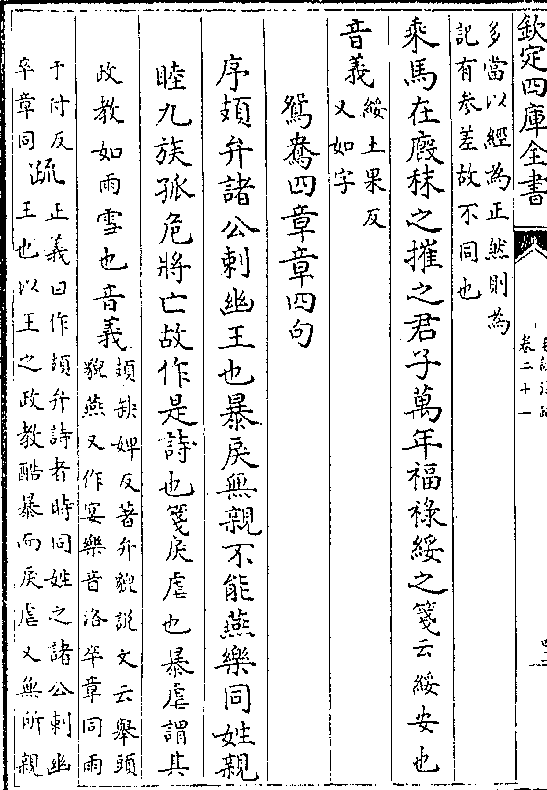 欽定四庫全書
卷二十一
多當以經為正然則為
記有參差故不同也
乘馬在廄秣之摧之君子萬年福祿綏之箋云綏安也
音義綏土果反
又如字
鴛鴦四章章四句
序頍弁諸公刺幽王也暴戾無親不能燕樂同姓親
睦九族孤危將亡故作是詩也箋戾虐也暴虐謂其
政教如雨雪也音義頍缺婢反著弁貌說文云舉頭
貌燕又作宴樂音洛卒章同雨
于付反
卒章同
疏正義曰作頍弁詩者時同姓之諸公刺幽
王也以王之政教酷暴而戾虐又無所親